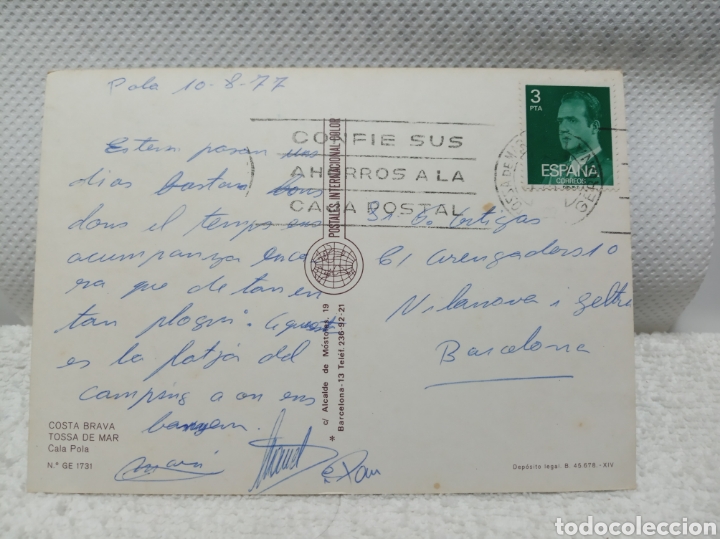 Pola 10-8-77
Estem pasan
dias bastan bons
dons el temps ens
acumpanya enca
ra que de tan en
tan plogui. Aquesta
es la platja del
camping a on ens
banyem.
Pau
COSTA BRAVA
TOSSA DE MAR
Cala Pola
N.º GE 1731
POSTALES INTERNACIONAL COLOR
c/ Alcalde de Móstoles, 19
* Barcelona-13 Teléf. 236-92-21
CONFIE SUS
AHORROS A LA
CAJA POSTAL
3
PTA
ESPAÑA
CORREOS
TOSSA DE MAR
Sr. G. Ortigas
C/ Arengaders 10
Vilanova i Geltru
Barcelona
Depósito legal: B. 45.578 - XIV
todocoleccion